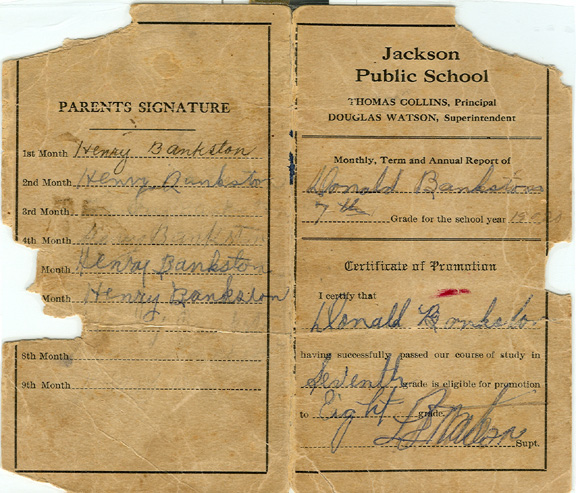 PARENTS SIGNATURE
1st Month Henry Bankston
2nd Month Henry Bankston
3rd Month
4th Month Henry Bankston
Month Henry Bankston
Month Henry Bankston
8th Month
9th Month
Jackson
Public School
THOMAS COLLINS, Principal
DOUGLAS WATSON, Superintendent
Monthly, Term and Annual Report of
Donald Bankstons
7 th Grade for the school year
Certificate of Promotion
I certify that
Donald Bankston
having successfully passed our course of study in
Seventh grade is eligible for promotion
to Eight grade.
Watson Supt.